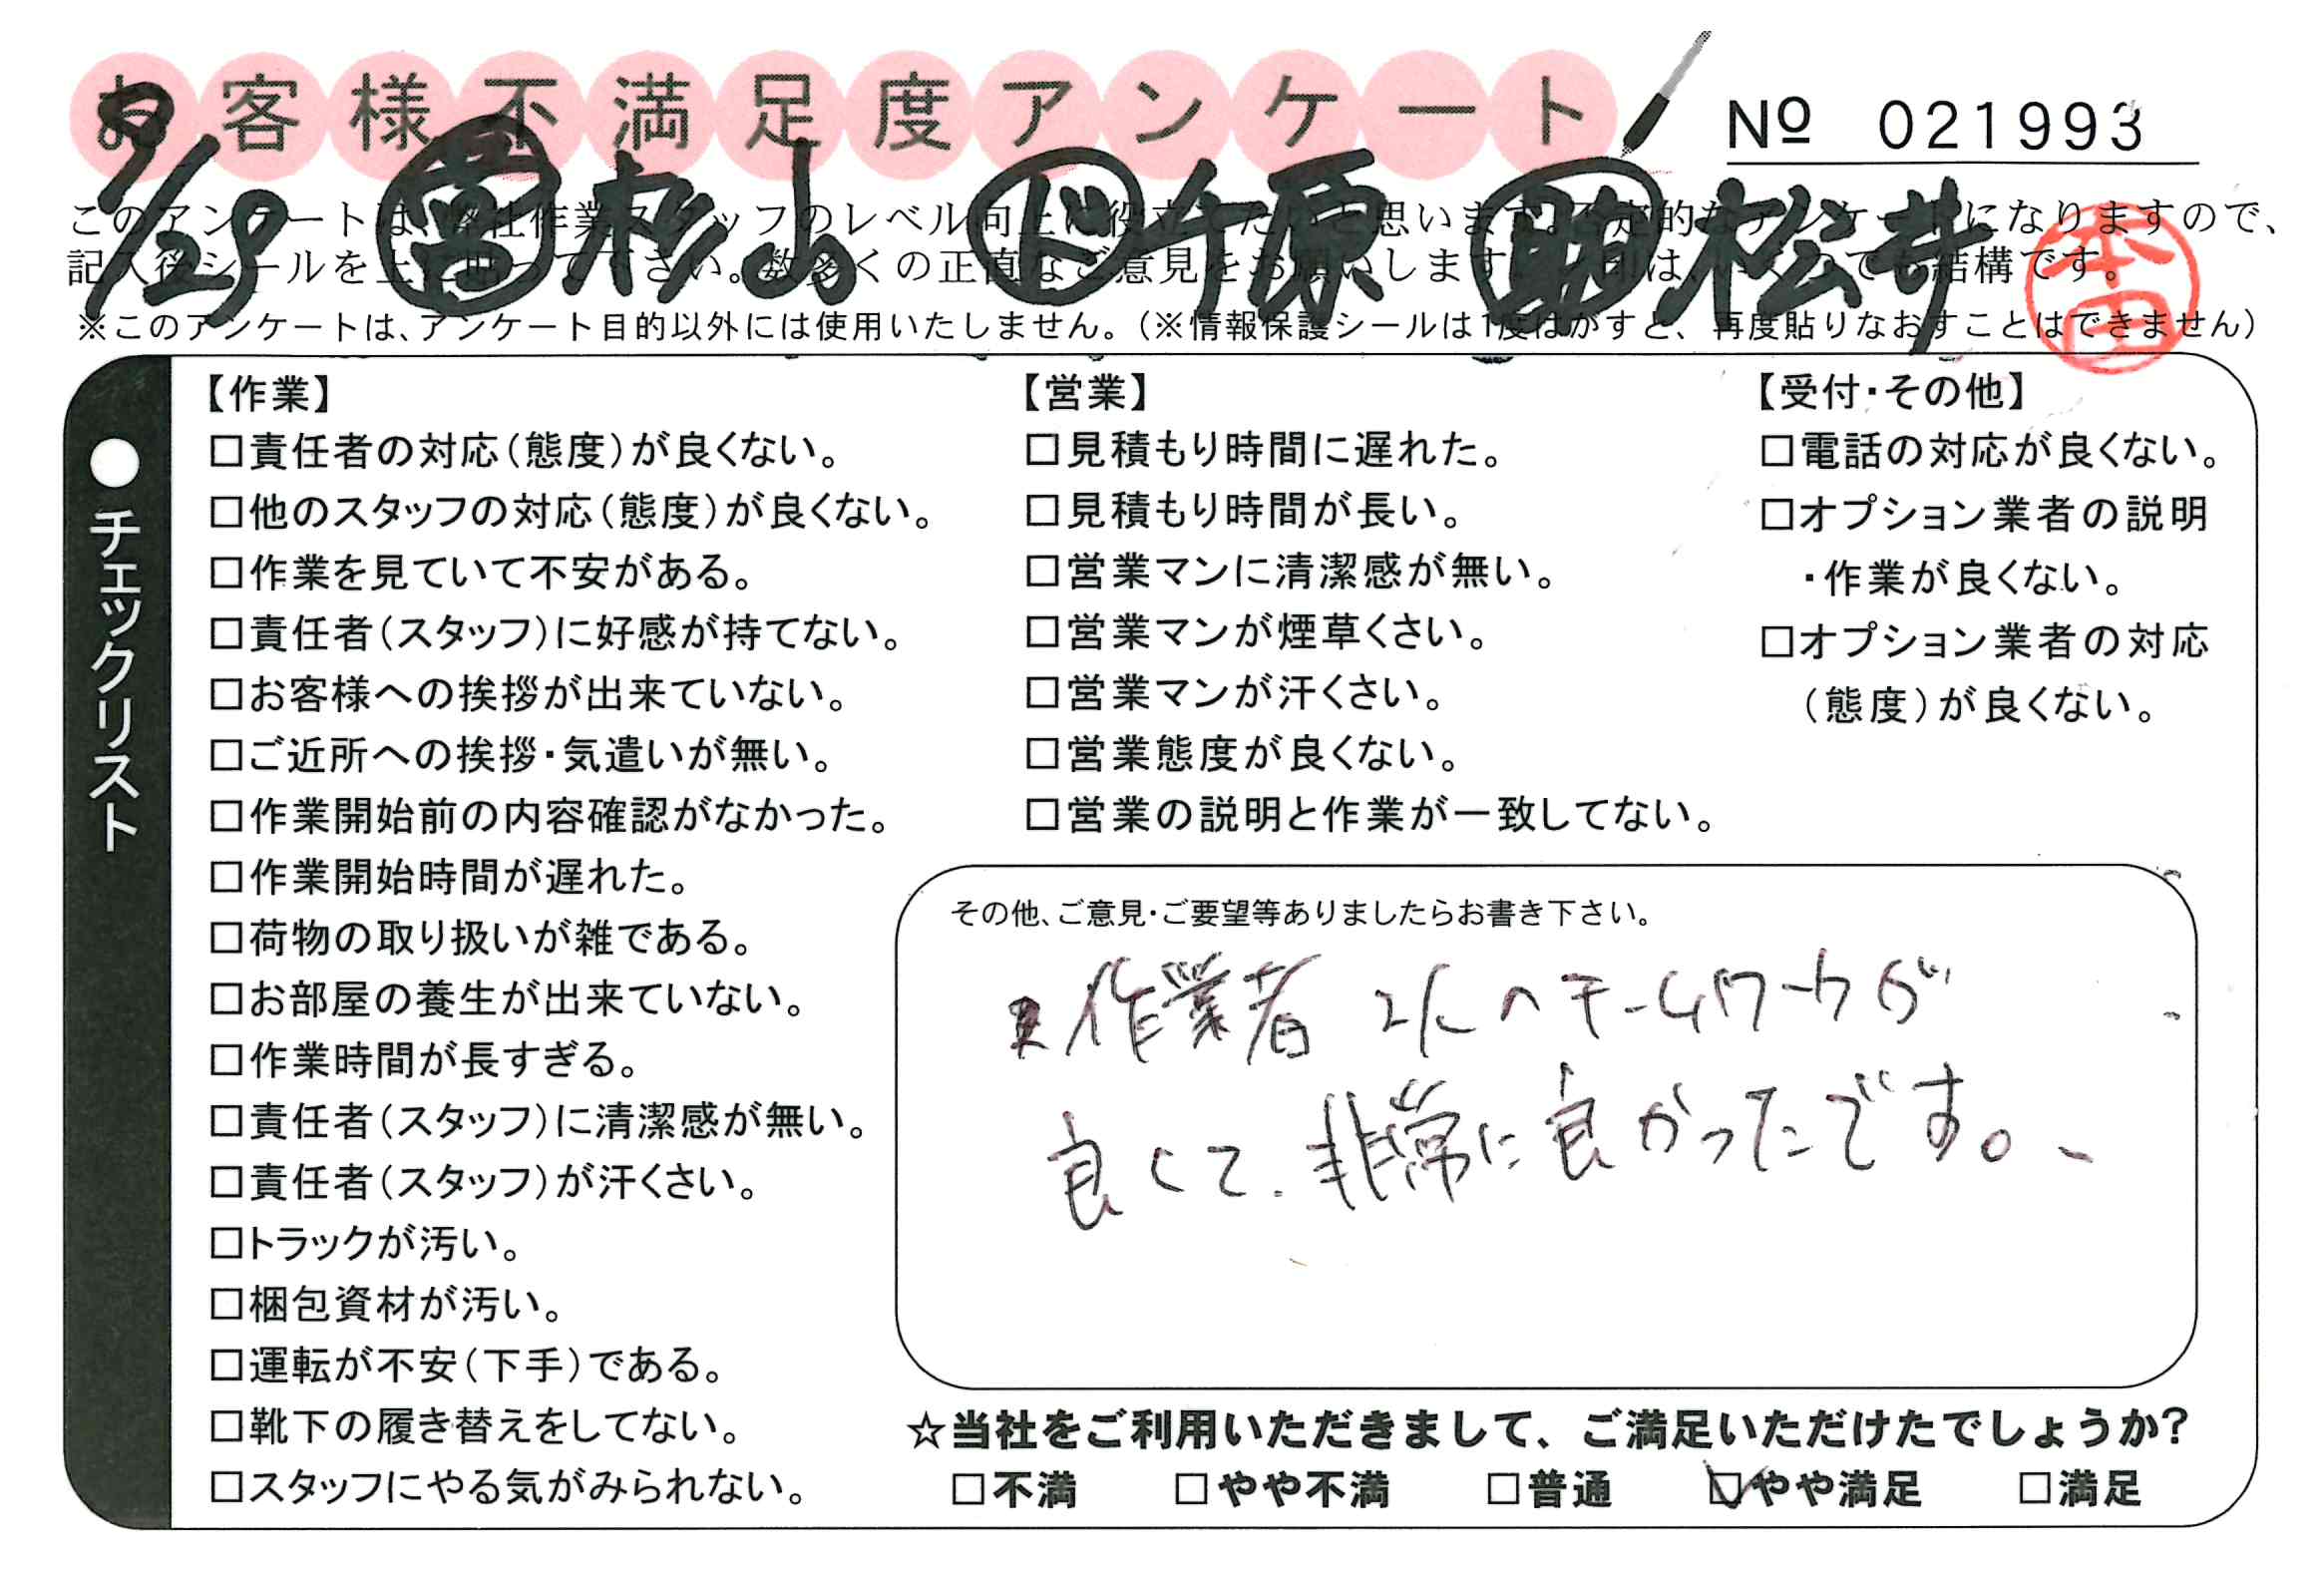 お客様不満足度アンケート
Nº 021993
9/29 営 杉山 ド 原 助 松井
本田
このアンケートは、弊社作業スタッフのレベル向上に役立てたいと思います。否定的なアンケートになりますので、
記入後シールを上に貼って下さい。数多くの正直なご意見をお願いします。 は、いくつでも結構です。
※このアンケートは、アンケート目的以外には使用いたしません。(※情報保護シールは1度はがすと、再度貼りなおすことはできません)
●チェックリスト
【作業】
□責任者の対応(態度)が良くない。
□他のスタッフの対応(態度)が良くない。
□作業を見ていて不安がある。
□責任者(スタッフ)に好感が持てない。
□お客様への挨拶が出来ていない。
□ご近所への挨拶・気遣いが無い。
□作業開始前の内容確認がなかった。
□作業開始時間が遅れた。
□荷物の取り扱いが雑である。
□お部屋の養生が出来ていない。
□作業時間が長すぎる。
□責任者(スタッフ)に清潔感が無い。
□責任者(スタッフ)が汗くさい。
□トラックが汚い。
□梱包資材が汚い。
□運転が不安(下手)である。
□靴下の履き替えをしてない。
□スタッフにやる気がみられない。
【営業】
□見積もり時間に遅れた。
□見積もり時間が長い。
□営業マンに清潔感が無い。
□営業マンが煙草くさい。
□営業マンが汗くさい。
□営業態度が良くない。
□営業の説明と作業が一致してない。
【受付・その他】
□電話の対応が良くない。
□オプション業者の説明
・作業が良くない。
□オプション業者の対応
(態度)が良くない。
その他、ご意見・ご要望等ありましたらお書き下さい。
作業者 2人のチームワークが
良くて、非常に良かったです。
☆当社をご利用いただきまして、ご満足いただけたでしょうか?
□不満 □やや不満 □普通 ☑やや満足 □満足